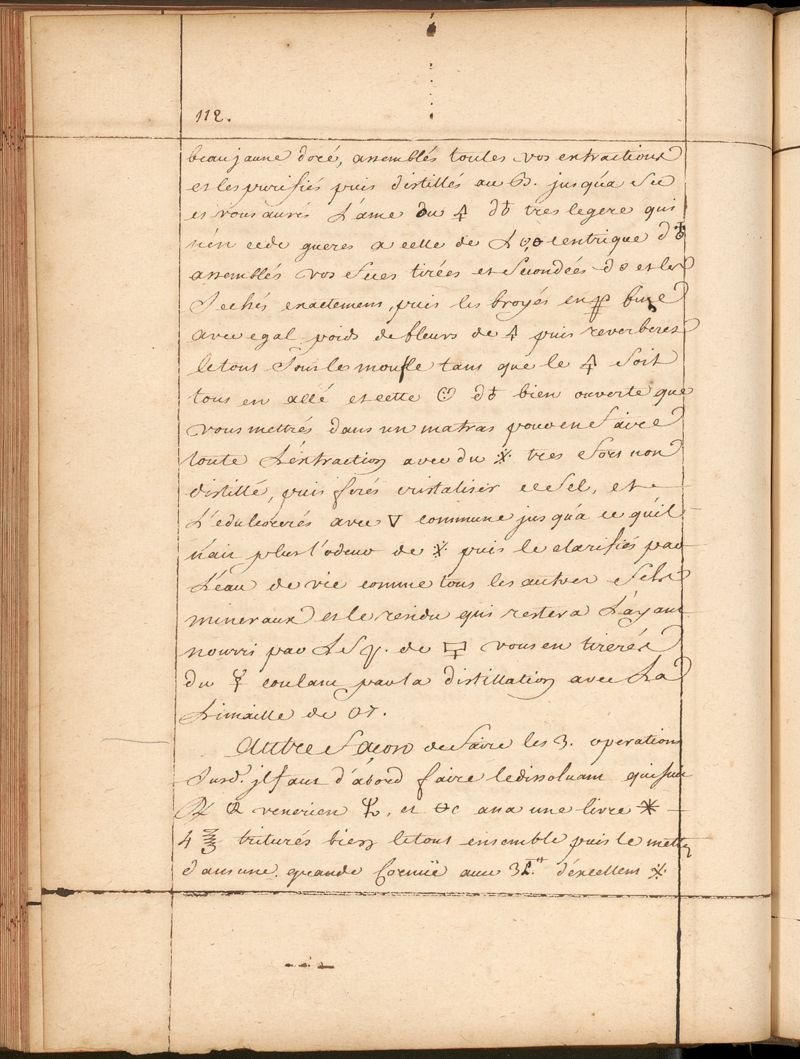 112.
beau jaune doré, assemblés toutes vos extractions
et les purifiés puis distillés au B. jusqu'a Sec
et vous aurés L'ame du 🜍 d♁ tres legere qui
n'en cede gueres a celle de centrique d♁
assemblés vos feces tirées et Secondées et les
Sechés exactement, puis les broyés en
avec egal poids de fleurs de 🜍 puis reverberez
le tout Sous les moufle tant que le 🜍 Soit
tous en allé et cette d♁ bien ouverte que
vous mettrés dans un matras pour en faire
toute L'extraction avec du 🜊 tres fort non
distillé, puis ferés cristaliser ce Sel, et
L'edulcorerés avec 🜄 commune jusqu'a ce qu'il
n'ait plus l'odeur de 🜊 puis le clarifiés par
L'eau de vie comme tous les autres Sels
mineraux et le residu qui restera L'ayant
nourri par L de vous en tirerés
du ☿ coulant par la distillation avec La
Limaille de ♂.
Autre facon de faire les 3. operations
Susd. il faut d'abord faire le dissolvant qui suit
venerien et ana une livre ✱
4 ℥ triturés bien le tout ensemble puis le mettez
dans une grande Cornüe avec 3 d'excellent 🜊